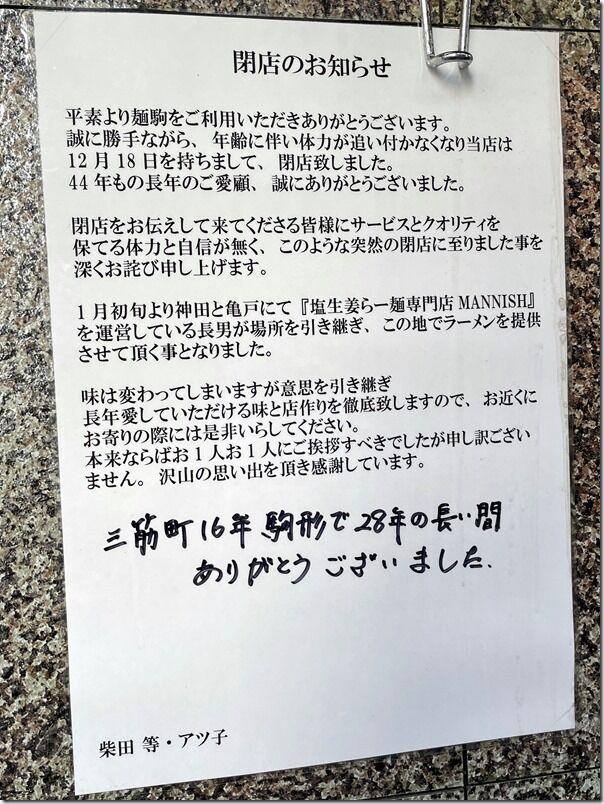 閉店のお知らせ
平素より麺駒をご利用いただきありがとうございます。
誠に勝手ながら、年齢に伴い体力が追い付かなくなり当店は
12月18日を持ちまして、閉店致しました。
44年もの長年のご愛顧、誠にありがとうございました。
閉店をお伝えして来てくださる皆様にサービスとクオリティを
保てる体力と自信が無く、このような突然の閉店に至りました事を
深くお詫び申し上げます。
1月初旬より神田と亀戸にて『塩生姜らー麺専門店MANNISH』
を運営している長男が場所を引き継ぎ、この地でラーメンを提供
させて頂く事となりました。
味は変わってしまいますが意思を引き継ぎ
長年愛していただける味と店作りを徹底致しますので、お近くに
お寄りの際には是非いらしてください。
本来ならばお1人お1人にご挨拶すべきでしたが申し訳ござい
ません。沢山の思い出を頂き感謝しています。
三筋町16年 駒形で28年の長い間
ありがとうございました.
柴田 等・アツ子